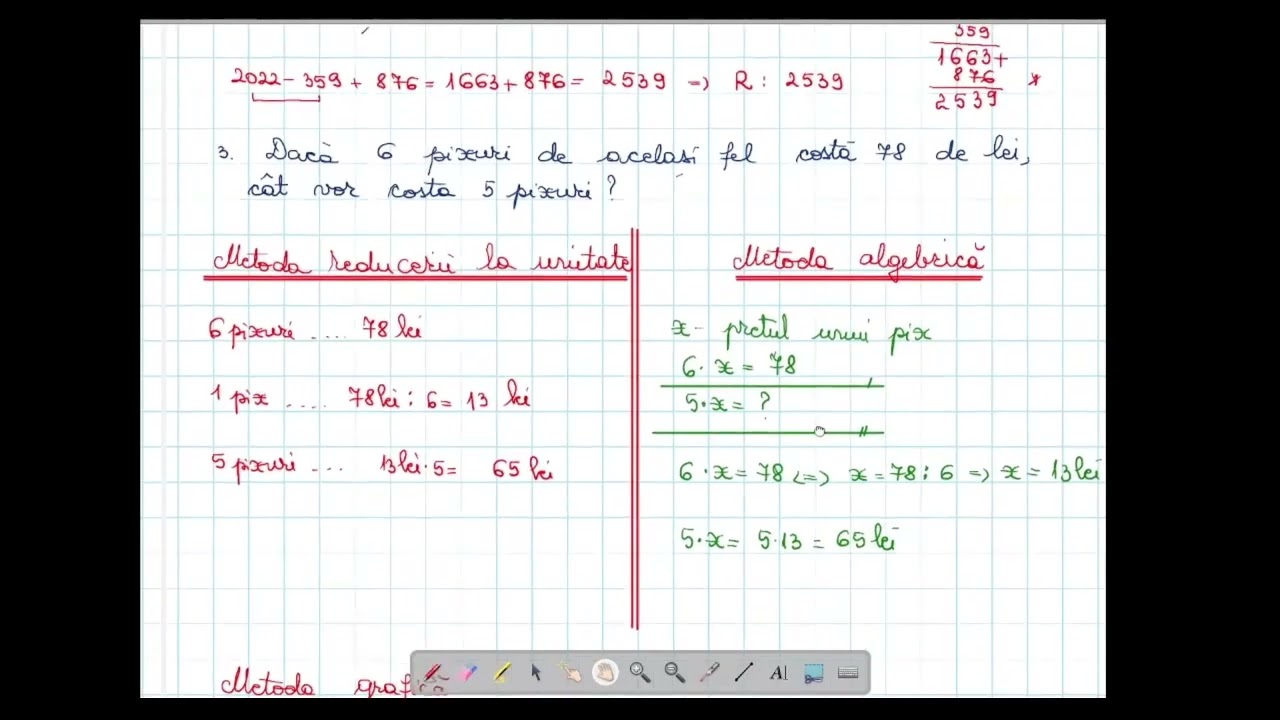 359
2022 - 359 + 876 = 1663 + 876 = 2539 => R : 2539
1663+
876
2539
*
3. Dacă 6 pixuri de același fel costă 78 de lei,
cât vor costa 5 pixuri ?
Metoda reducerii la unitate
6 pixuri .... 78 lei
1 pix .... 78 lei : 6 = 13 lei
5 pixuri ... 13 lei · 5 = 65 lei
Metoda algebrică
x - prețul unui pix
6 · x = 78
5 · x = ?
6 · x = 78 <=> x = 78 : 6 => x = 13 lei
5 · x = 5 · 13 = 65 lei
Metoda grafică
AI